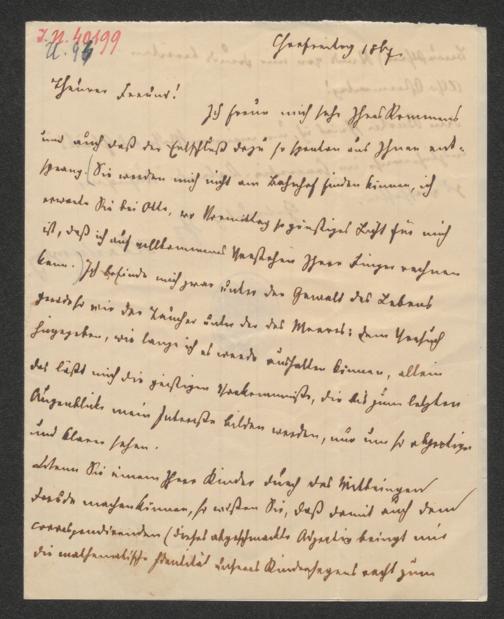 I.N. 40199
Charfreitag 1867.
Theurer Freund!
Ich freue mich sehr Ihres Kommens
und auch daß der Entschluß dazu so spontan aus Ihnen ent-
sprang. (Sie werden mich nicht am Bahnhof finden können, ich
erwarte Sie bei Otto, wo Vormittag so günstiges Licht für mich
ist, daß ich auf vollkommenes Verstehen Ihrer Finger rechnen
kann.) Ich befinde mich zwar unter der Gewalt des Lebens
geradeso wie der Taucher unter der des Meeres: dem Versuch
hingegeben, wie lange ich es werde aushalten können, allein
das läßt mich die geistigen Vorkommnisse, die bis zum letzten
Augenblick mein Interesse bilden werden, nur um so
und klarer sehen.
Wenn Sie einem Ihrer Kinder durch das Mitbringen
Freude machen können, so wissen Sie, daß damit auch dem
correspondirenden (dieses abgeschmackte Adjectiv bringt mir
die mathematische Identität unseres Kindersegens recht zum